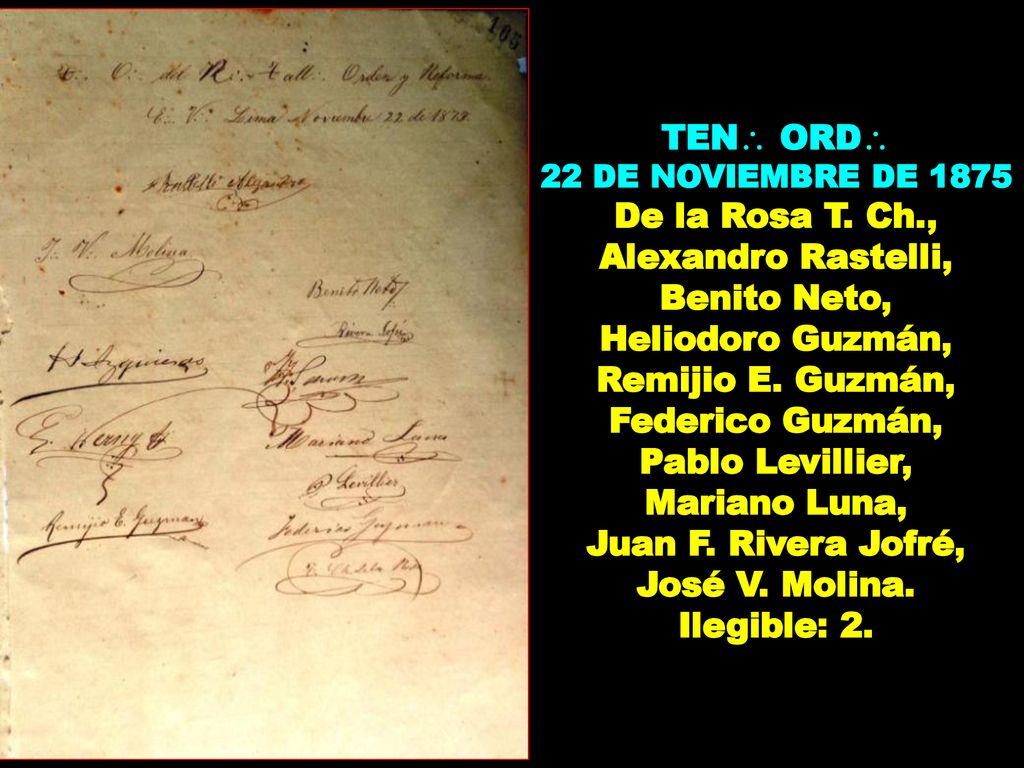 165
T∴ O∴ del R∴ tall∴ Orden y Reforma
E∴ V∴ Lima Noviembre 22 de 187
Rastelli Alejandro
J. V. Molina
Benito Neto
Rivera Jofré
H Izquierdo
E.
Mariano Luna
P Levillier
Remijio E. Guzman
Federico Guzman
T. Ch de la Rosa
TEN∴ ORD∴
22 DE NOVIEMBRE DE 1875
De la Rosa T. Ch.,
Alexandro Rastelli,
Benito Neto,
Heliodoro Guzmán,
Remijio E. Guzmán,
Federico Guzmán,
Pablo Levillier,
Mariano Luna,
Juan F. Rivera Jofré,
José V. Molina.
Ilegible: 2.